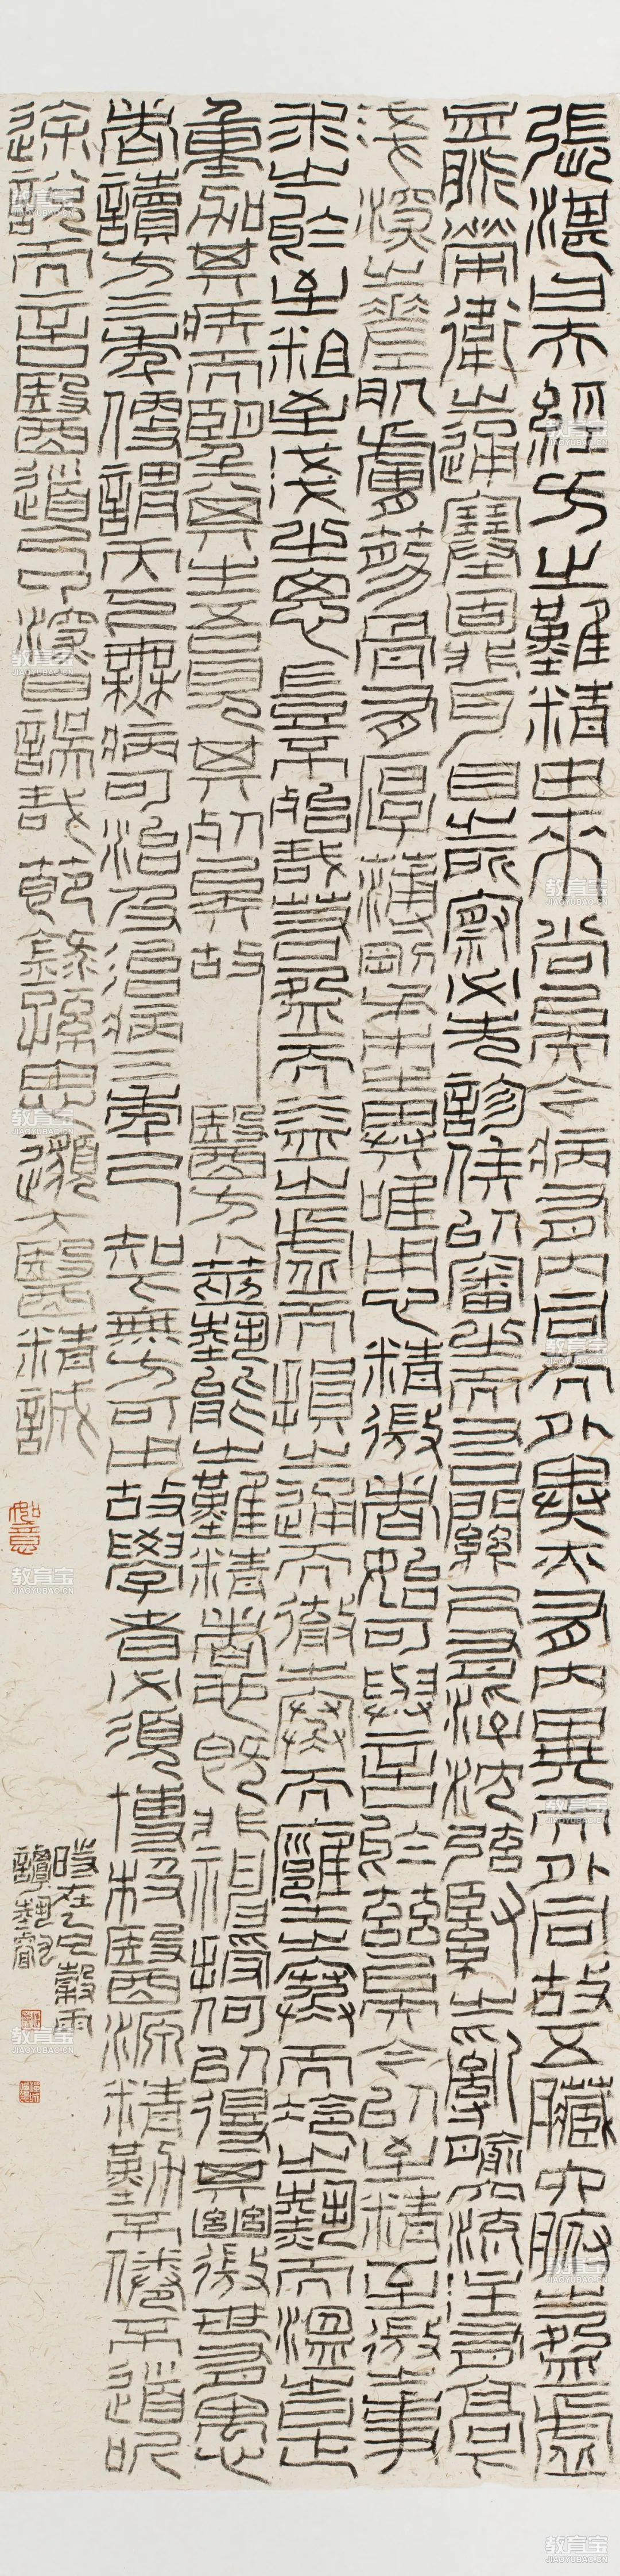 張湛曰夫經方之難精由來尚矣今病有內同而外異亦有內異而外同故五臟六腑之盈虛
血脈榮衛之通塞固非耳目之所察必先診候以審之而寸口關尺有浮沉弦緊之亂喻穴流注有高下
淺深之差肌膚筋骨有厚薄剛柔之異唯用心精微者始可與言於茲矣今以至精至微之事
求之於至粗至淺之思豈不殆哉若盈而益之虛而損之通而徹之塞而壅之寒而冷之熱而溫之是
重加其疾而望其生吾見其死矣故醫方卜筮藝能之難精者也既非神授何以得其幽微世有愚
者讀方三年便謂天下無病可治及治病三年乃知天下無方可用故學者必須博極醫源精勤不倦不道聽
途說而言醫道已了深自誤哉節錄孫思邈大醫精誠
如意
時在乙巳穀雨
譚藝睿
教育宝
JIAOYUBAO.CN